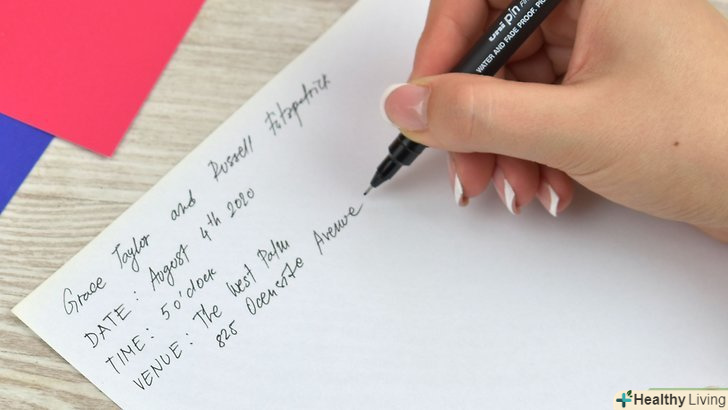 uni pin FINE
WATER AND FADE PROOF, PI
Grace Taylor and Russell Fitzpatrick
DATE: August 4th 2020
TIME: 5 o'clock
VENUE: The West Palm
825 Oceansite Avenue
Healthy Living